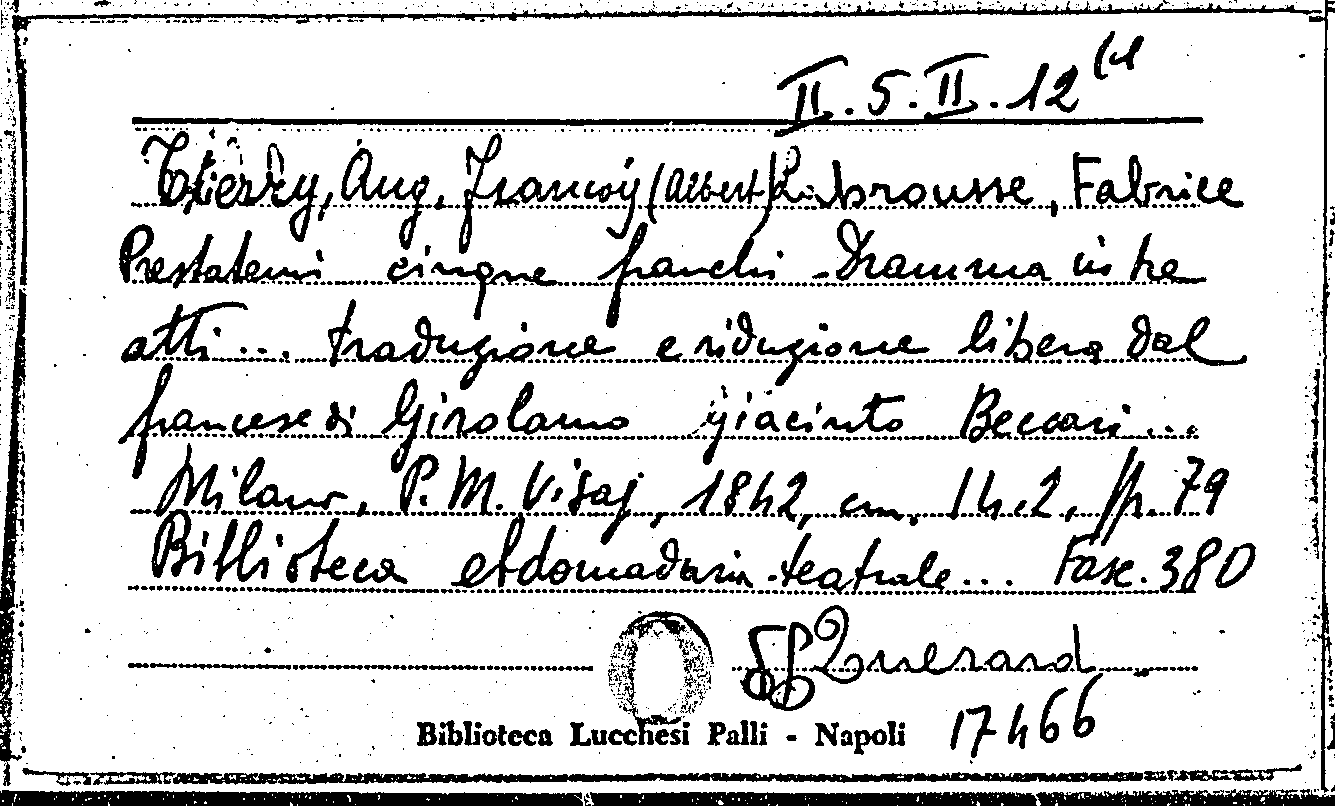 II. 5. II. 12 (4
Thierry, Aug. François (Albert) Labrousse, Fabrice
Prestatemi cinque franchi - Dramma in tre
atti... traduzione e riduzione libera dal
francese di Girolamo Giacinto Beccari...
Milano, P. M. Visaj, 1842, cm. 14.2, pp. 79
Biblioteca ebdomadaria-teatrale... Fasc. 380
Querard
Biblioteca Lucchesi Palli - Napoli 17466